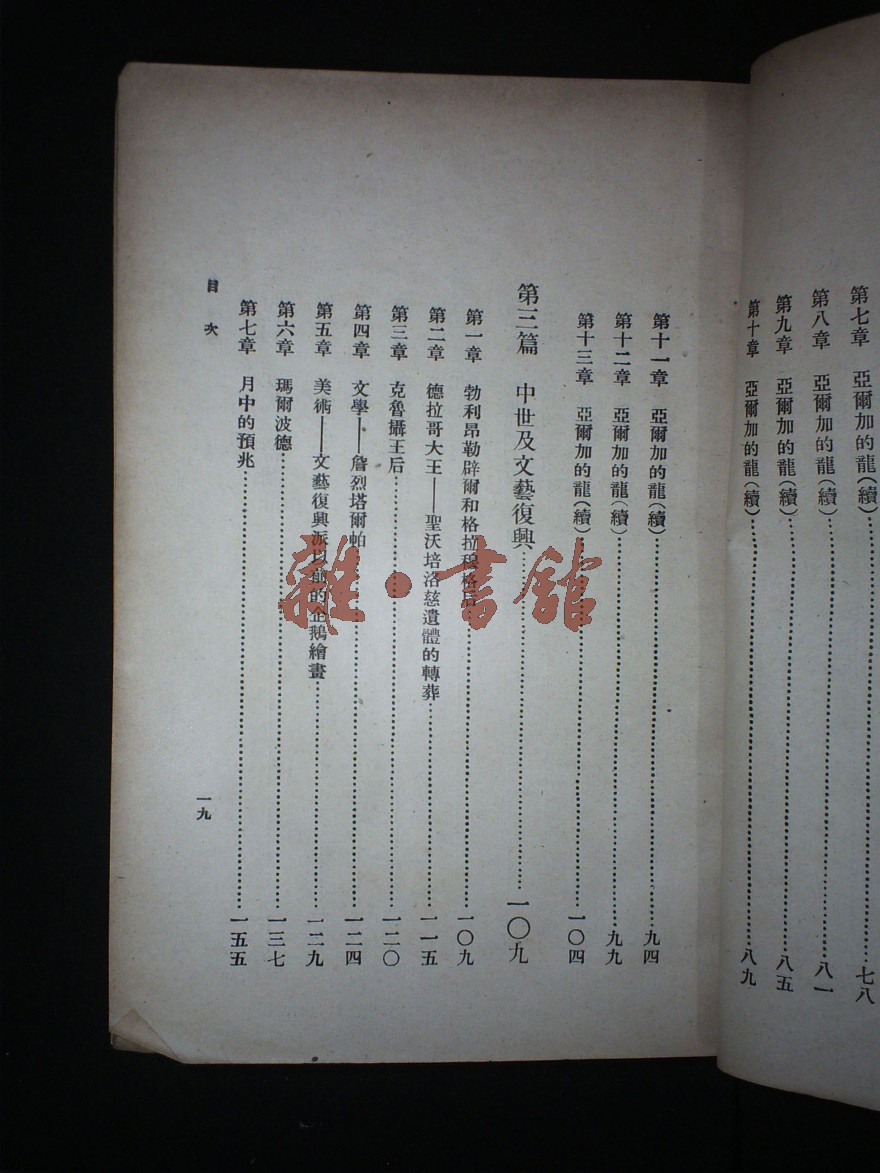 第七章 亞爾加的龍(續)……七八
第八章 亞爾加的龍(續)……八一
第九章 亞爾加的龍(續)……八五
第十章 亞爾加的龍(續)……八九
第十一章 亞爾加的龍(續)……九四
第十二章 亞爾加的龍(續)……九九
第十三章 亞爾加的龍(續)……一〇四
第三篇 中世及文藝復興……一〇九
第一章 勃利昂勒辟爾和格拉穆格后……一〇九
第二章 德拉哥大王——聖沃培洛慈遺體的轉葬……一一五
第三章 克魯攝王后……一二〇
第四章 文學——詹烈塔爾帕……一二四
第五章 美術——文藝復興派以前的企鵝繪畫……一二九
第六章 瑪爾波德……一三七
第七章 月中的預兆……一五五
目次
一九
雜·書館